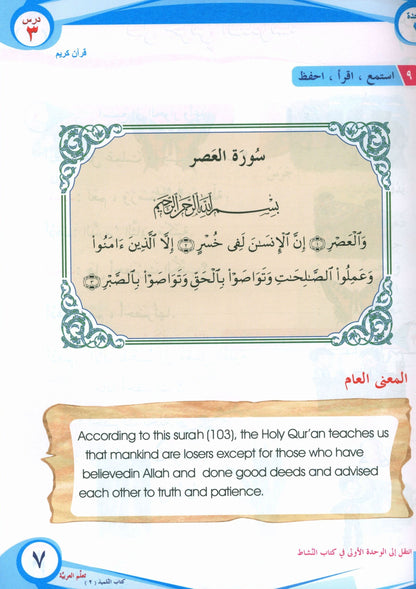 درس
٣
قرآن كريم
٩ استمع ، اقرأ ، احفظ
سُورَة العَصر
بِسْمِ اللَّهِ الرَّحْمَنِ الرَّحِيمِ
وَٱلْعَصْرِ ۝١ إِنَّ ٱلْإِنسَـٰنَ لَفِى خُسْرٍ ۝٢ إِلَّا ٱلَّذِينَ ءَامَنُوا۟
وَعَمِلُوا۟ ٱلصَّـٰلِحَـٰتِ وَتَوَاصَوْا۟ بِٱلْحَقِّ وَتَوَاصَوْا۟ بِٱلصَّبْرِ ۝٣
المعنى العام
According to this surah (103), the Holy Qur'an teaches us
that mankind are losers except for those who have
believedin Allah and done good deeds and advised
each other to truth and patience.
انتقل إلى الوحدة الأولى في كتاب النّشاط
٧
تعلّم العربيّة
كتاب التلميذ (٢)